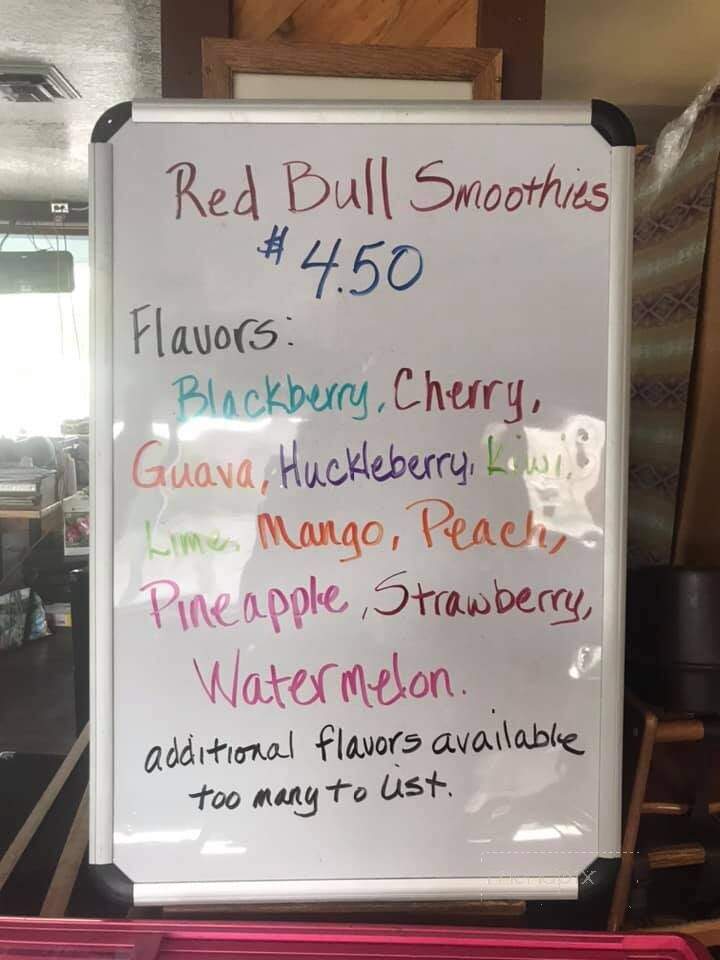 Red Bull Smoothies
$4.50
Flavors:
Blackberry, Cherry,
Guava, Huckleberry, Kiwi,
Lime, Mango, Peach,
Pineapple, Strawberry,
Watermelon.
additional flavors available
too many to list.